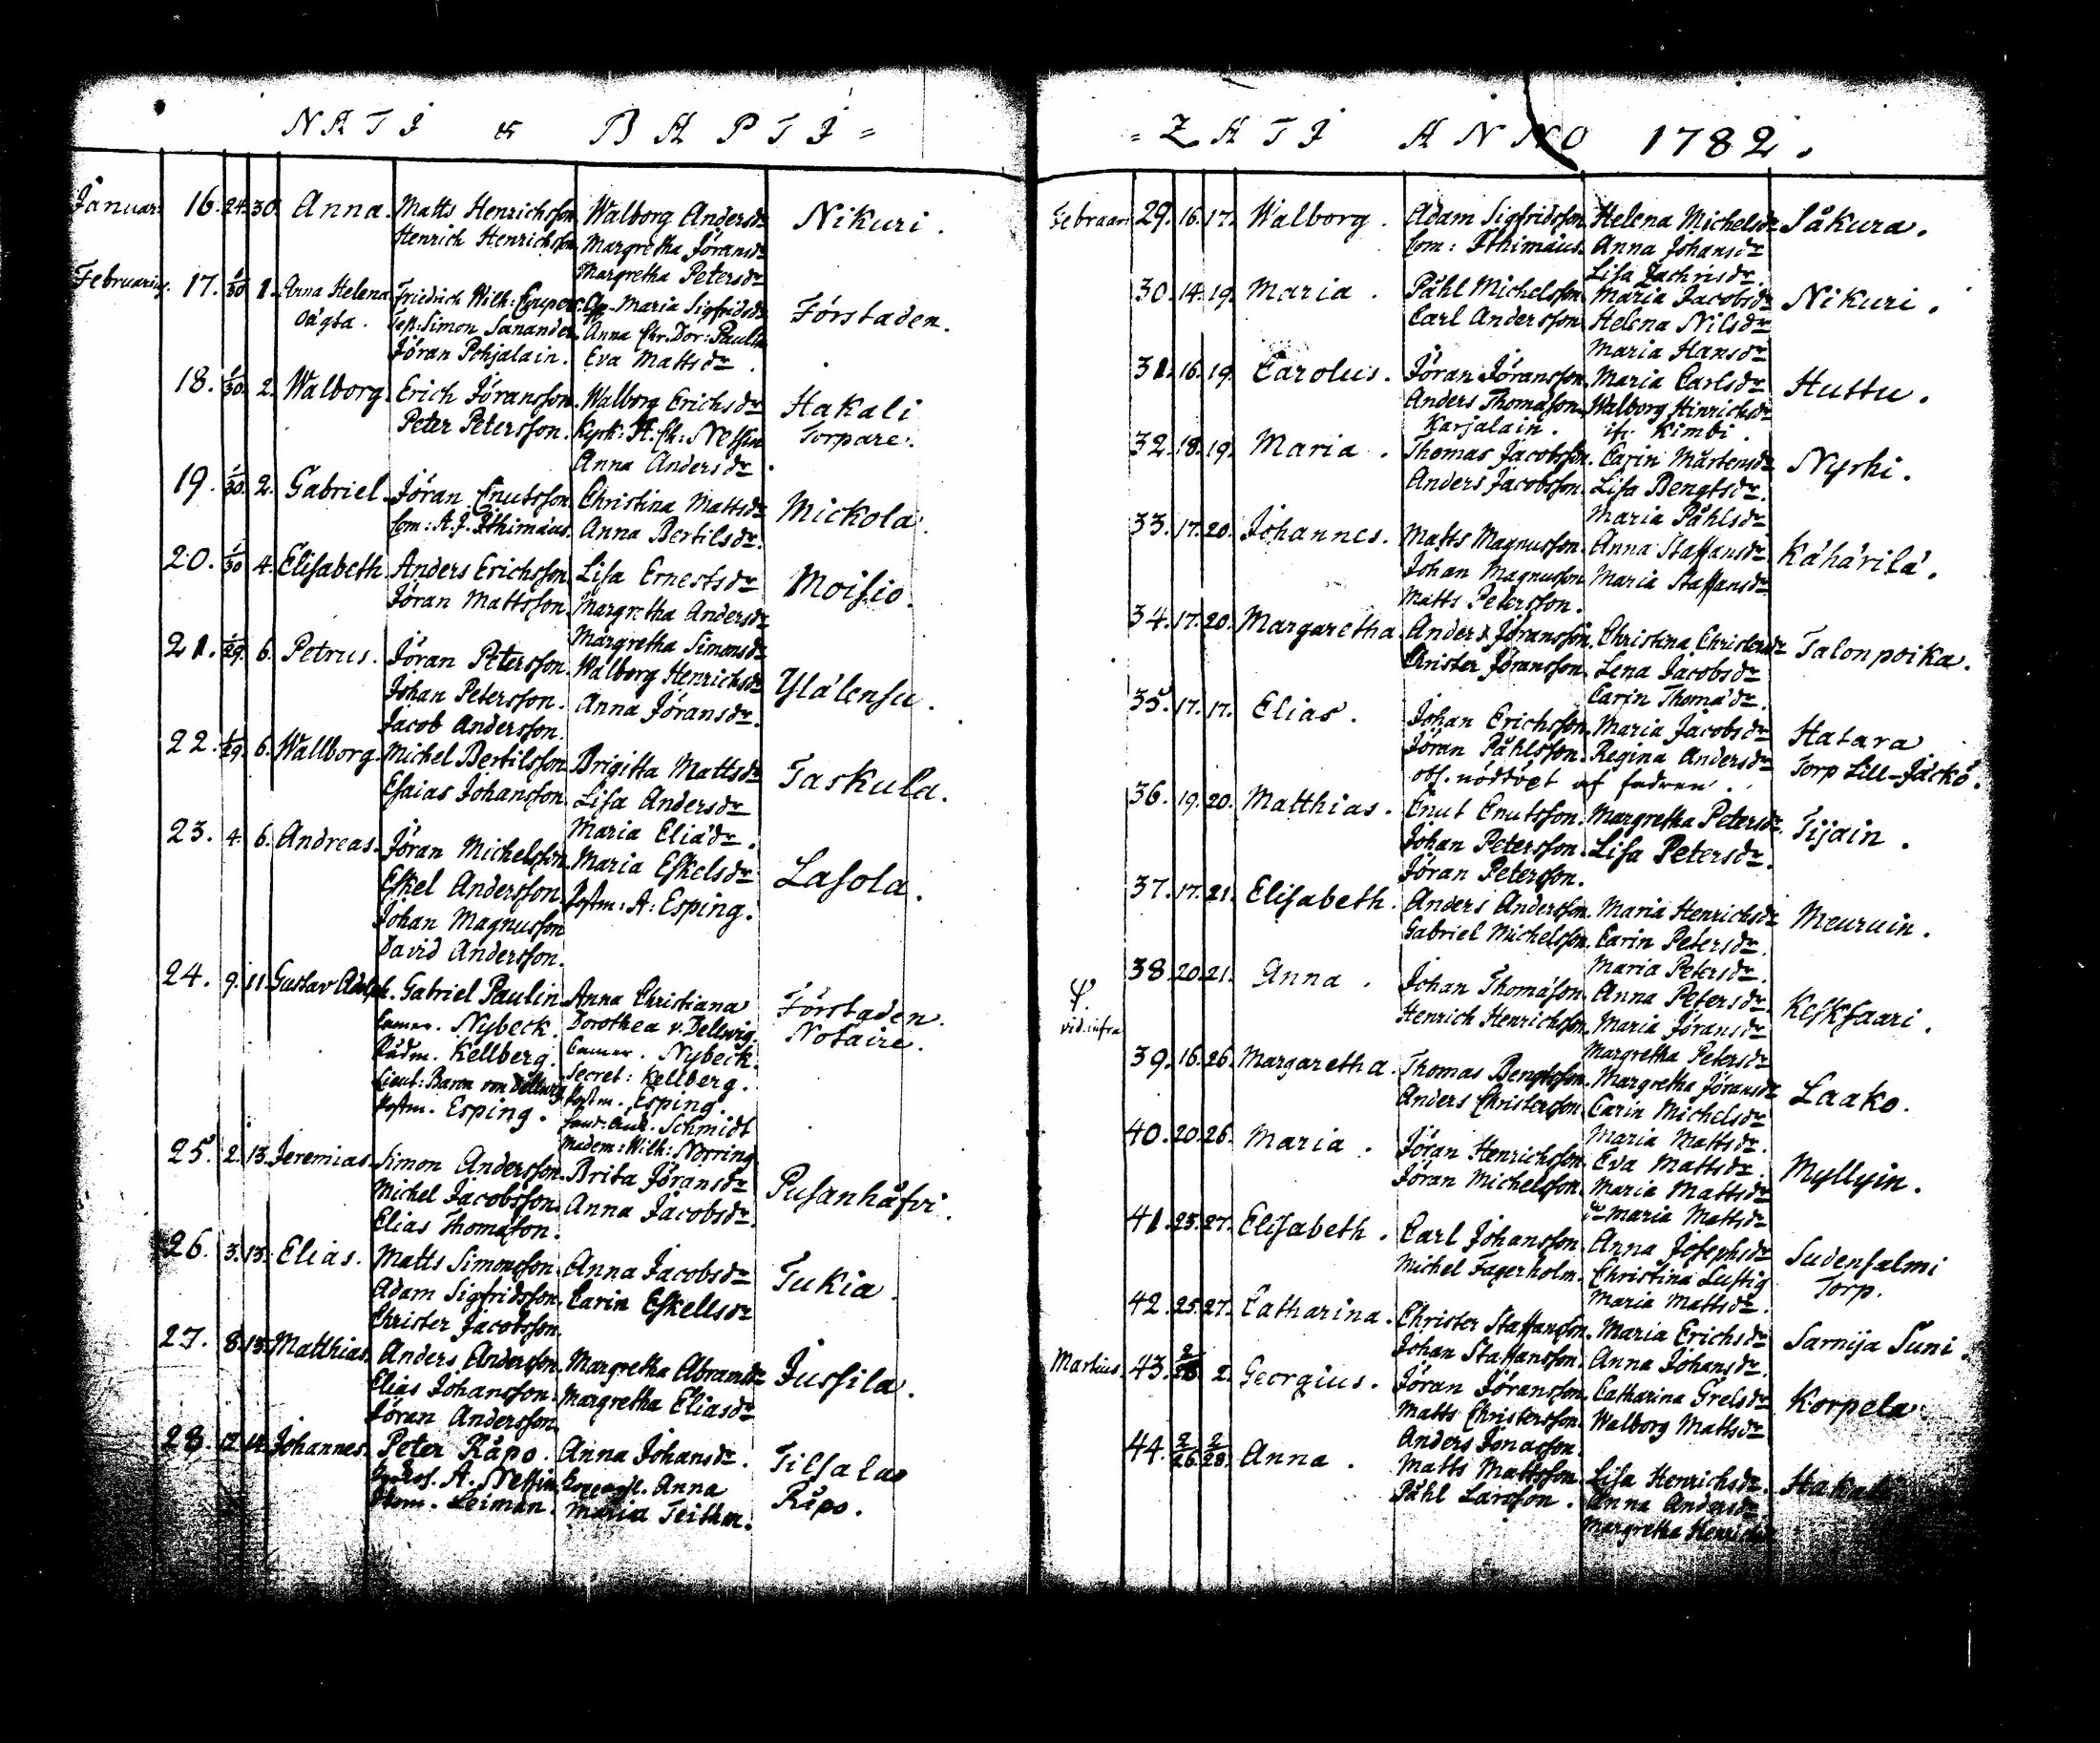 NATI & BAPTI=
Januar: 16. 24. 30. Anna. Matts Henrichsson. Walborg Andersdr Nikuri.
Henrich Henrichsson. Margretha Jöransdr
Margretha Petersdr
Februarius. 17. 1/30 1. Anna Helena Friedrich Wilh: Maria Sigfridsdr Förstaden.
oägta. Simon Anna Chr. Dor: Paulin
Jöran Pohjalain. Eva Mattsdr.
18. 1/30. 2. Walborg. Erich Jöransson. Walborg Erichsdr Hakali
Peter Petersson. Torpare.
Anna Andersdr.
19. 1/30. 2. Gabriel. Jöran Cnutsson. Christina Mattsdr Mickola.
Com: A. J. Ithimæus. Anna Bertilsdr.
20. 1/30 4. Elisabeth. Anders Erichsson. Lisa Ernestsdr Moisio.
Jöran Mattsson. Margretha Andersdr
Margretha Simonsdr
21. 1/29. 6. Petrus. Jöran Petersson. Walborg Henrichsdr Ylälensu.
Johan Petersson. Anna Jöransdr.
Jacob Andersson.
22. 1/29. 6. Wallborg. Michel Bertilsson. Brigitta Mattsdr Taskula.
Esaias Johansson. Lisa Andersdr
Maria Eliædr.
23. 4. 6. Andreas. Jöran Michelsson. Maria Eskelsdr Lasola.
Eskel Andersson. Postm: A: Esping.
Johan Magnusson
David Andersson.
24. 9. 11. Gustav Adolph. Gabriel Paulin. Anna Christiana Förstaden.
Camer. Nybeck. Dorothea v. Dellwig. Notaire.
Rådm. Kellberg. Camer. Nybeck.
Lieut: Baron von Dellwig Secret: Kellberg.
Postm. Esping. Postm. Esping.
Schmidt
Madem: Wilh: Norring
25. 2. 13. Jeremias. Simon Andersson. Brita Jöransdr Pusanhåfvi.
Michel Jacobsson. Anna Jacobsdr.
Elias Thomasson.
26. 3. 13. Elias. Matts Simonsson. Anna Jacobsdr Tukia.
Adam Sigfridsson. Carin Eskellsdr
Christer Jacobsson.
27. 8. 13. Matthias. Anders Andersson. Margretha Abramsdr Jussila.
Elias Johansson. Margretha Eliasdr
Jöran Andersson
28. 12. 14. Johannes. Peter Råpo. Anna Johansdr. Tilsala
A. Anna Råpo.
Leiman. Maria
=ZATI ANNO 1782.
Februari 29. 16. 17. Walborg. Adam Sigfridsson. Helena Michelsdr Såkura.
Com: Ithimæus. Anna Johansdr
Lisa Zachrisdr.
30. 14. 19. Maria. Påhl Michelsson. Maria Jacobsdr Nikuri.
Carl Andersson. Helena Nilsdr
Maria Hansdr
31. 16. 19. Carolus. Jöran Jöransson. Maria Carlsdr Huttu.
Anders Thomasson. Walborg Hinrichsdr
Karjalain. Kimbi.
32. 18. 19. Maria. Thomas Jacobsson. Carin Mårtensdr Nyrhi.
Anders Jacobsson. Lisa Bengtsdr.
Maria Påhlsdr
33. 17. 20. Johannes. Matts Magnusson. Anna Staffansdr Kähärilä.
Johan Magnusson Maria Staffansdr
Matts Petersson.
34. 17. 20. Margaretha. Anders Jöransson. Christina Christersdr Talonpoika.
Christer Jöransson. Lena Jacobsdr
Carin Thomædr.
35. 17. 17. Elias. Johan Erichsson. Maria Jacobsdr Hatara
Jöran Påhlsson. Regina Andersdr Torp Lill-Jäskö.
obs. nöddöpt af fadren.
36. 19. 20. Matthias. Cnut Cnutsson. Margretha Petersdr. Tijain.
Johan Petersson. Lisa Petersdr.
Jöran Petersson.
37. 17. 21. Elisabeth. Anders Andersson. Maria Henrichsdr Meuruin.
Gabriel Michelsson. Carin Petersdr.
Maria Petersdr.
38 20. 21. Anna. Johan Thomasson. Anna Petersdr. Keskisaari.
vid: infra Henrich Henrichsson. Maria Jöransdr
Margretha Petersdr
39. 16. 26. Margaretha. Thomas Bengtsson. Margretha Jöransdr Laako.
Anders Christersson. Carin Michelsdr
Maria Mattsdr.
40. 20. 26. Maria. Jöran Henrichsson. Eva Mattsdr. Myllyin.
Jöran Michelsson. Maria Mattsdr
Maria Mattsdr
41. 23. 27. Elisabeth. Carl Johansson. Anna Josephsdr Sudensalmi
Michel Fagerholm. Christina Lustig Torp.
Maria Mattsdr.
42. 25. 27. Catharina. Christer Staffansson. Maria Erichsdr Sarvija Suni.
Johan Staffansson. Anna Johansdr.
Martius. 43. 2. Georgius. Jöran Jöransson. Catharina Grelsdr Korpela.
Matts Christersson. Walborg Mattsdr
Anders Jonasson.
44. 2/26. 2/28. Anna. Matts Mattsson. Lisa Henrichsdr.
Påhl Larsson. Anna Andersdr
Margretha